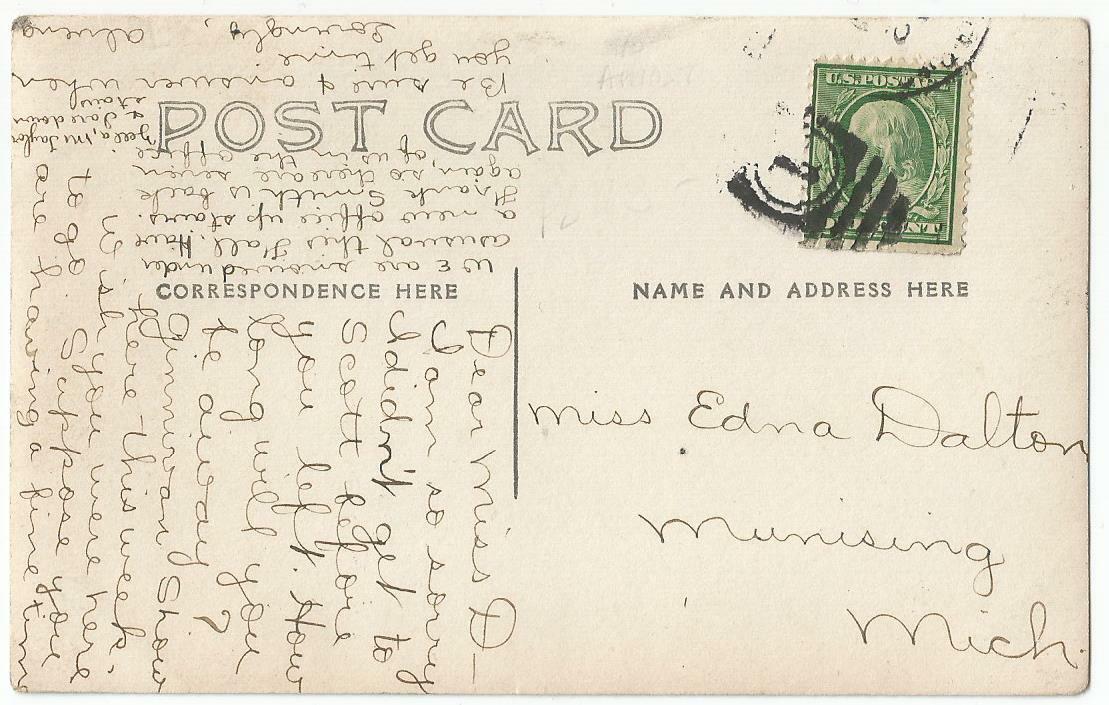 POST CARD
CORRESPONDENCE HERE
NAME AND ADDRESS HERE
U.S. POSTAGE
Miss Edna Dalton
Munising
Mich.
Dear Miss D—
I am so sorry
I didn't get to
Scott before
you left. How
long will you
be away?
Show
here this week,
Wish you were here
to go. Suppose you
are having a fine time
We are snowed under
as usual this Fall. Have
a new office up stairs.
Frank Smith is back
again, so there are seven
of us in the office
Mr Taylor
& I are down
stairs
Be sure & answer when
you get time
Lovingly
Alvena